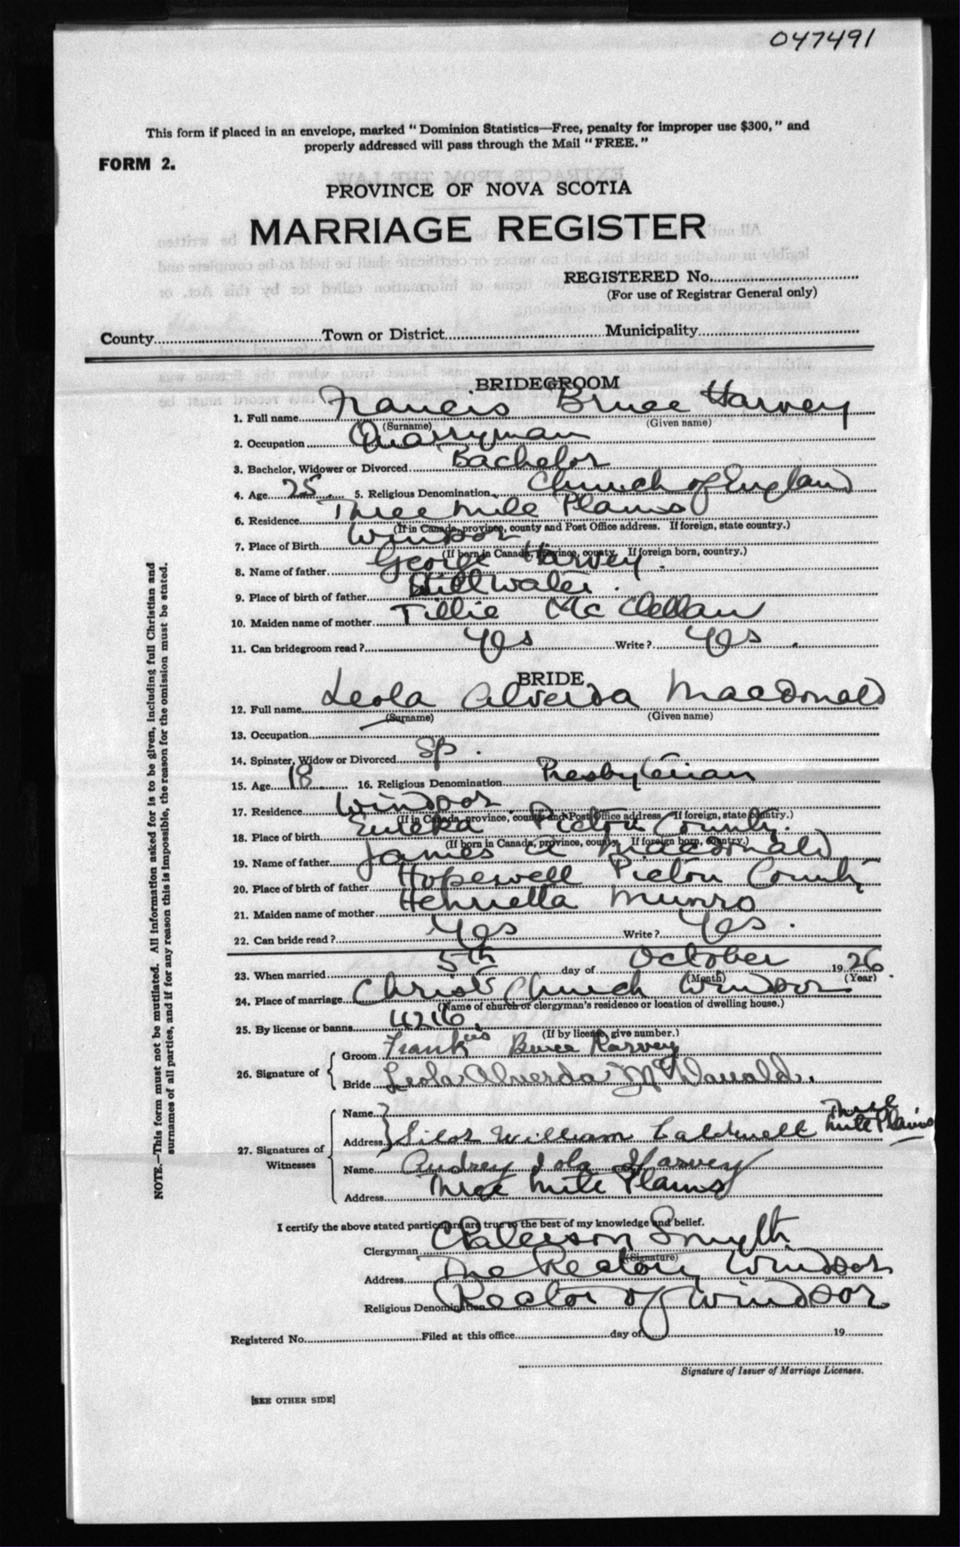 047491
This form if placed in an envelope, marked "Dominion Statistics—Free, penalty for improper use $300," and
properly addressed will pass through the Mail "FREE."
FORM 2.
PROVINCE OF NOVA SCOTIA
MARRIAGE REGISTER
REGISTERED No.
(For use of Registrar General only)
County Town or District Municipality
BRIDEGROOM
1. Full name Francis Bruce Harvey
(Surname) (Given name)
2. Occupation Quarryman
3. Bachelor, Widower or Divorced Bachelor
4. Age 25. 5. Religious Denomination Church of England
6. Residence Three Mile Plains
(If in Canada, province, county and Post Office address. If foreign, state country.)
7. Place of Birth Windsor
(If born in Canada, province, county. If foreign born, country.)
8. Name of father George Harvey.
9. Place of birth of father Stillwater.
10. Maiden name of mother Tillie McClellan
11. Can bridegroom read? Yes Write? Yes.
BRIDE
12. Full name Leola Alverda Macdonald
(Surname) (Given name)
13. Occupation
14. Spinster, Widow or Divorced Sp.
15. Age 18 16. Religious Denomination Presbyterian
17. Residence Windsor
(If in Canada, province, county and Post Office address. If foreign, state country.)
18. Place of birth Eureka Pictou County.
(If born in Canada, province, county. If foreign born, country.)
19. Name of father James A Macdonald
20. Place of birth of father Hopewell Pictou County
21. Maiden name of mother Henrietta Munro
22. Can bride read? Yes Write? Yes.
23. When married 5th day of October 1926.
(Month) (Year)
24. Place of marriage Christ Church Windsor
(Name of church or clergyman's residence or location of dwelling house.)
25. By license or banns 4216
(If by license, give number.)
26. Signature of
Groom Frankis Bruce Harvey
Bride Leola Alverda McDonald.
27. Signatures of Witnesses
Name
Address Silas William Caldwell Three Mile Plains
Name Audrey Iola Harvey
Address Three Mile Plains
I certify the above stated particulars are true to the best of my knowledge and belief.
Clergyman Paterson Smyth
(Signature)
Address The Rectory Windsor
Religious Denomination Rector of Windsor
Registered No. Filed at this office day of 19
Signature of Issuer of Marriage Licenses.
[SEE OTHER SIDE]
NOTE.—This form must not be mutilated. All information asked for is to be given, including full Christian and
surnames of all parties, and if for any reason this is impossible, the reason for the omission must be stated.